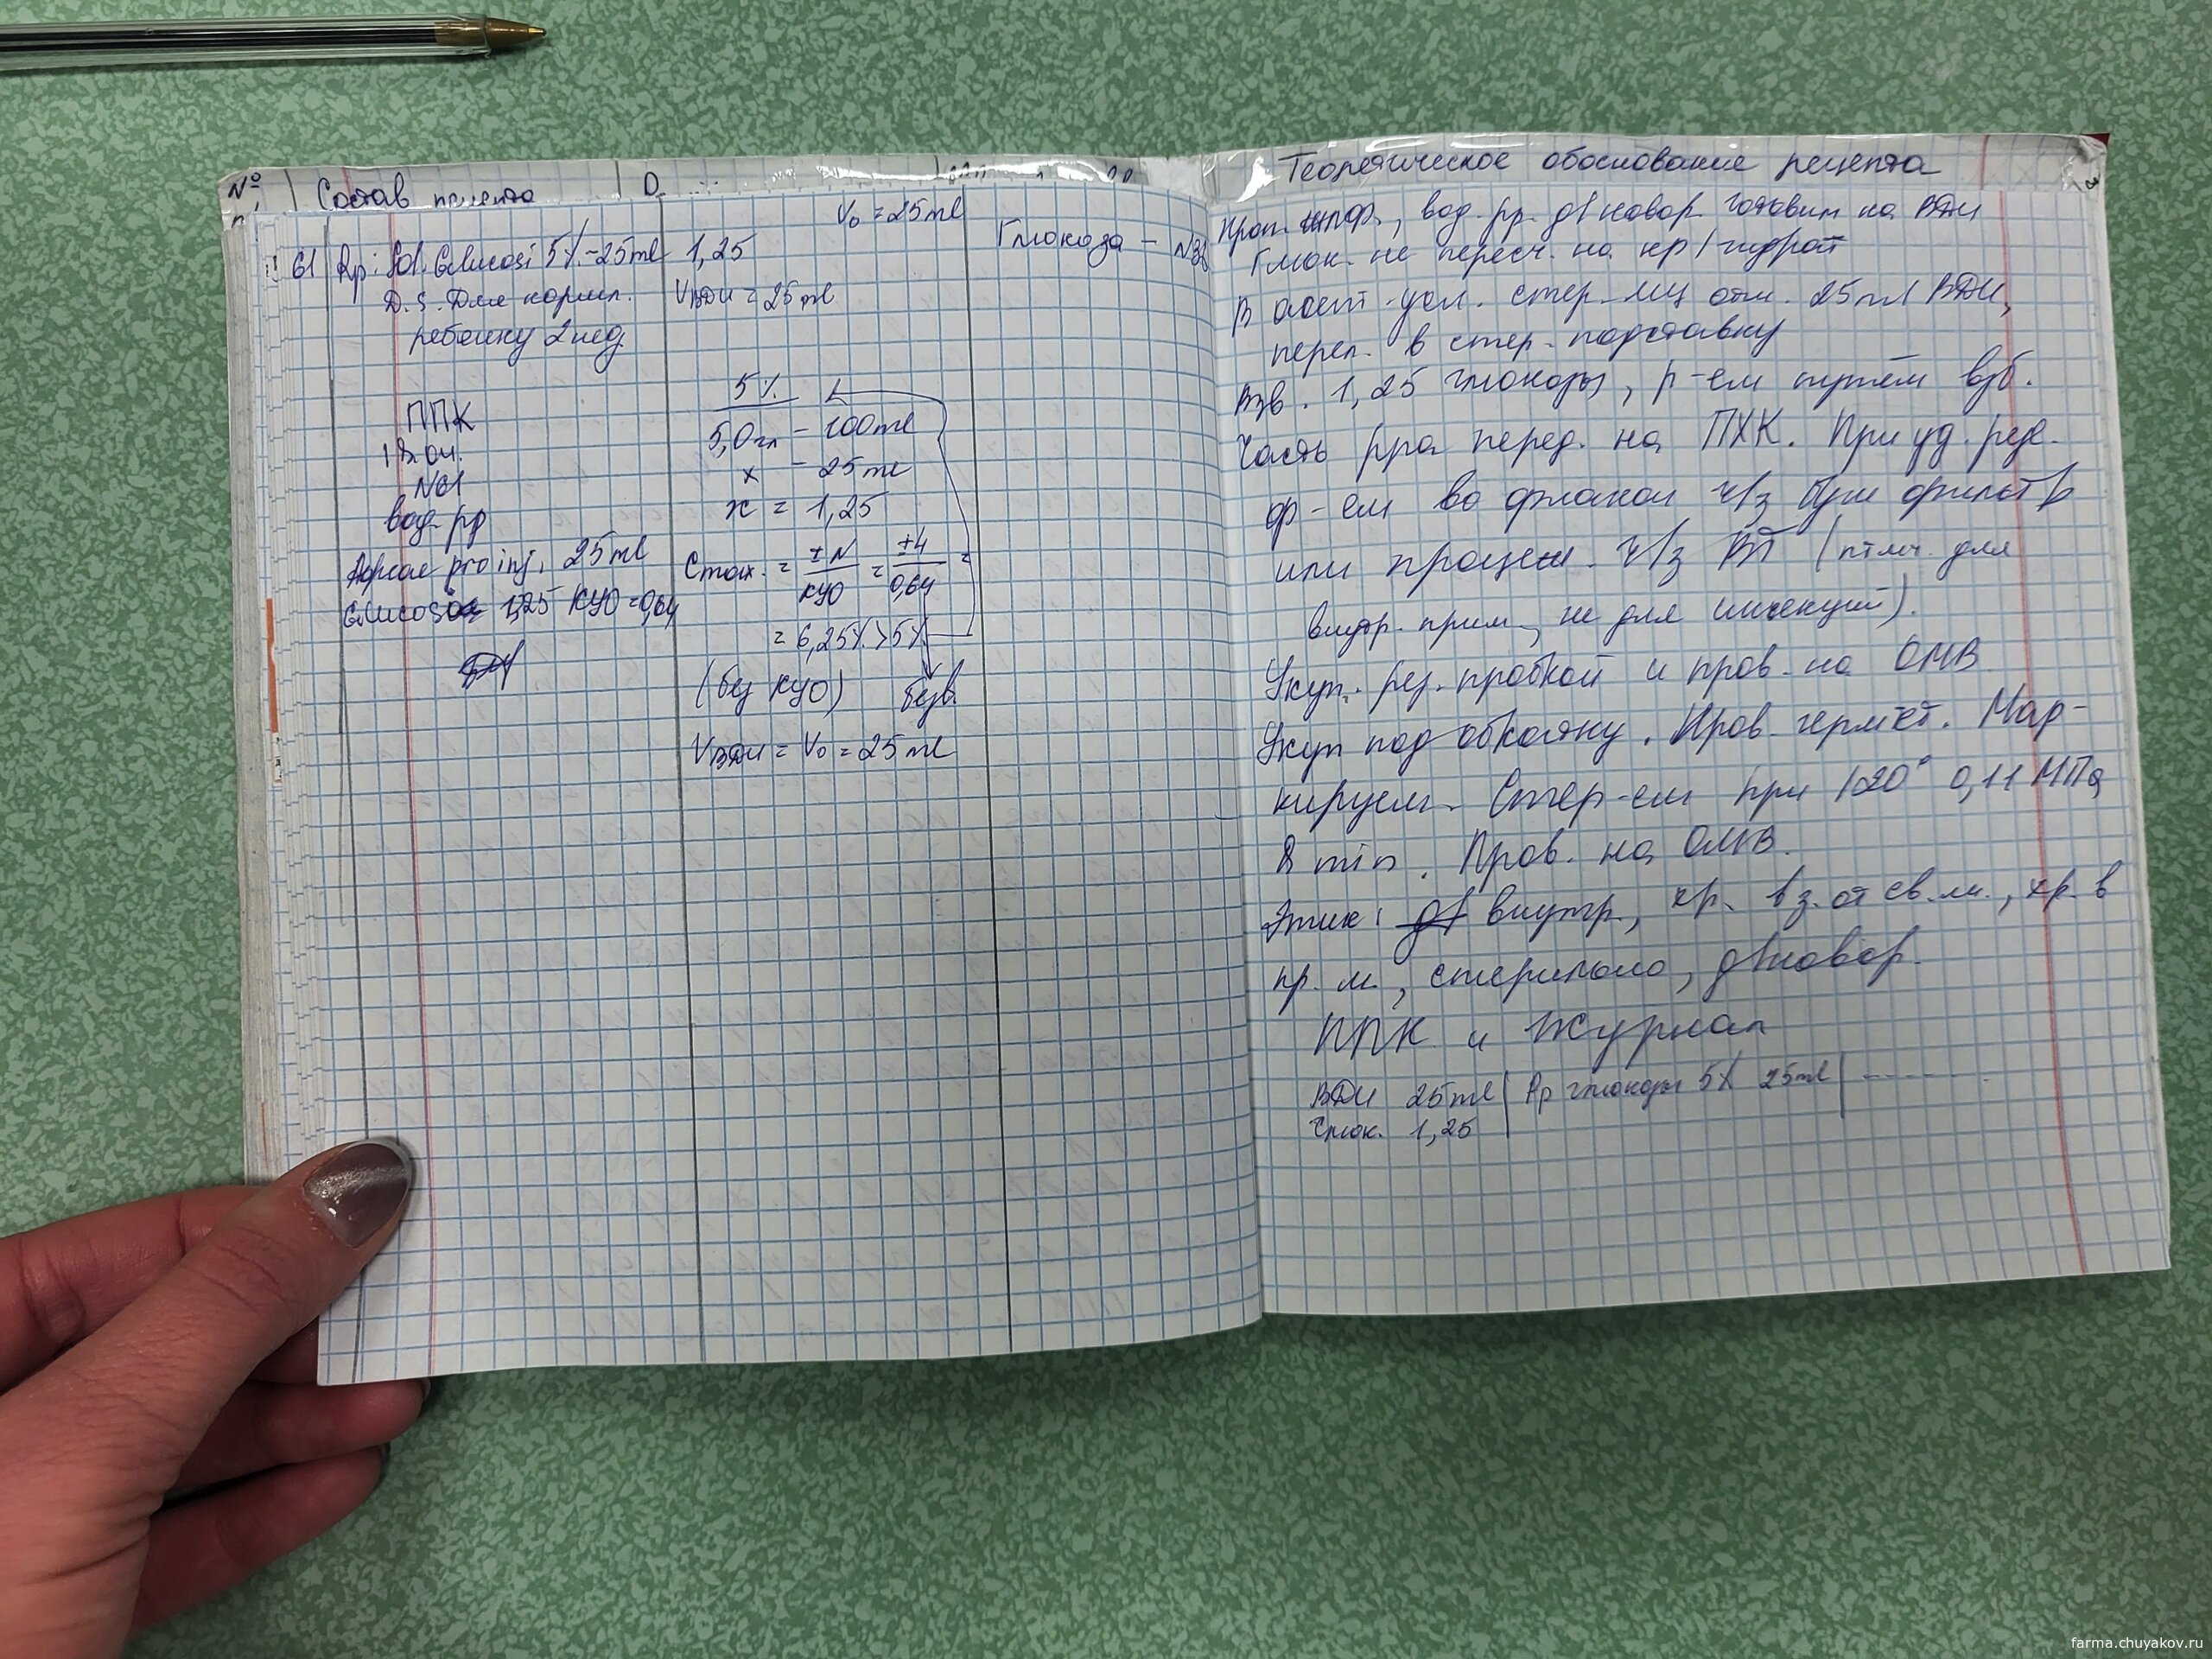 №
Состав рецепта
V₀ = 25 ml
61 Rp: Sol. Glucosi 5% - 25 ml
D.S. Для кормл.
ребенку 2 нед
1,25
Vвди = 25 ml
Глюкоза -
ППК
N61
вод. рр
Aquae pro inj. 25 ml
Glucosae 1,25 КУО = 0,64
5%
5,0 гл - 100 ml
x - 25 ml
x = 1,25
Cmax. = ± N / КУО = ±4 / 0,64 =
= 6,25% > 5%
(без КУО)
Vвди = V₀ = 25 ml
Теоретическое обоснование рецепта
вод. рр. д/новор. готовим на ВДИ
Глюк. не пересч. на кр/гидрат
В асепт. усл. стер. МЦ отм. 25 ml ВДИ,
перел. в стер. подставку
Взв. 1,25 глюкозы, р-ем путём взб.
Часть рра перед. на ПХК. При уд. рез.
ф-ем во флакон ч/з бум фильтр
или процеж. ч/з ВТ (т.к. для
внутр. прим., не для инъекций).
Укуп. рез. пробкой и пров. на ОМВ
Укуп под обкатку. Пров. гермет. Мар-
кируем. Стер-ем при 120° 0,11 МПа
8 min. Пров. на ОМВ.
Этик: внутр., хр. в з. от св. м., хр. в
пр. м., стерильно, д/новор.
ППК и Журнал
ВДИ 25 ml | Рр глюкозы 5% 25 ml |
Глюк. 1,25
farma.chuyakov.ru